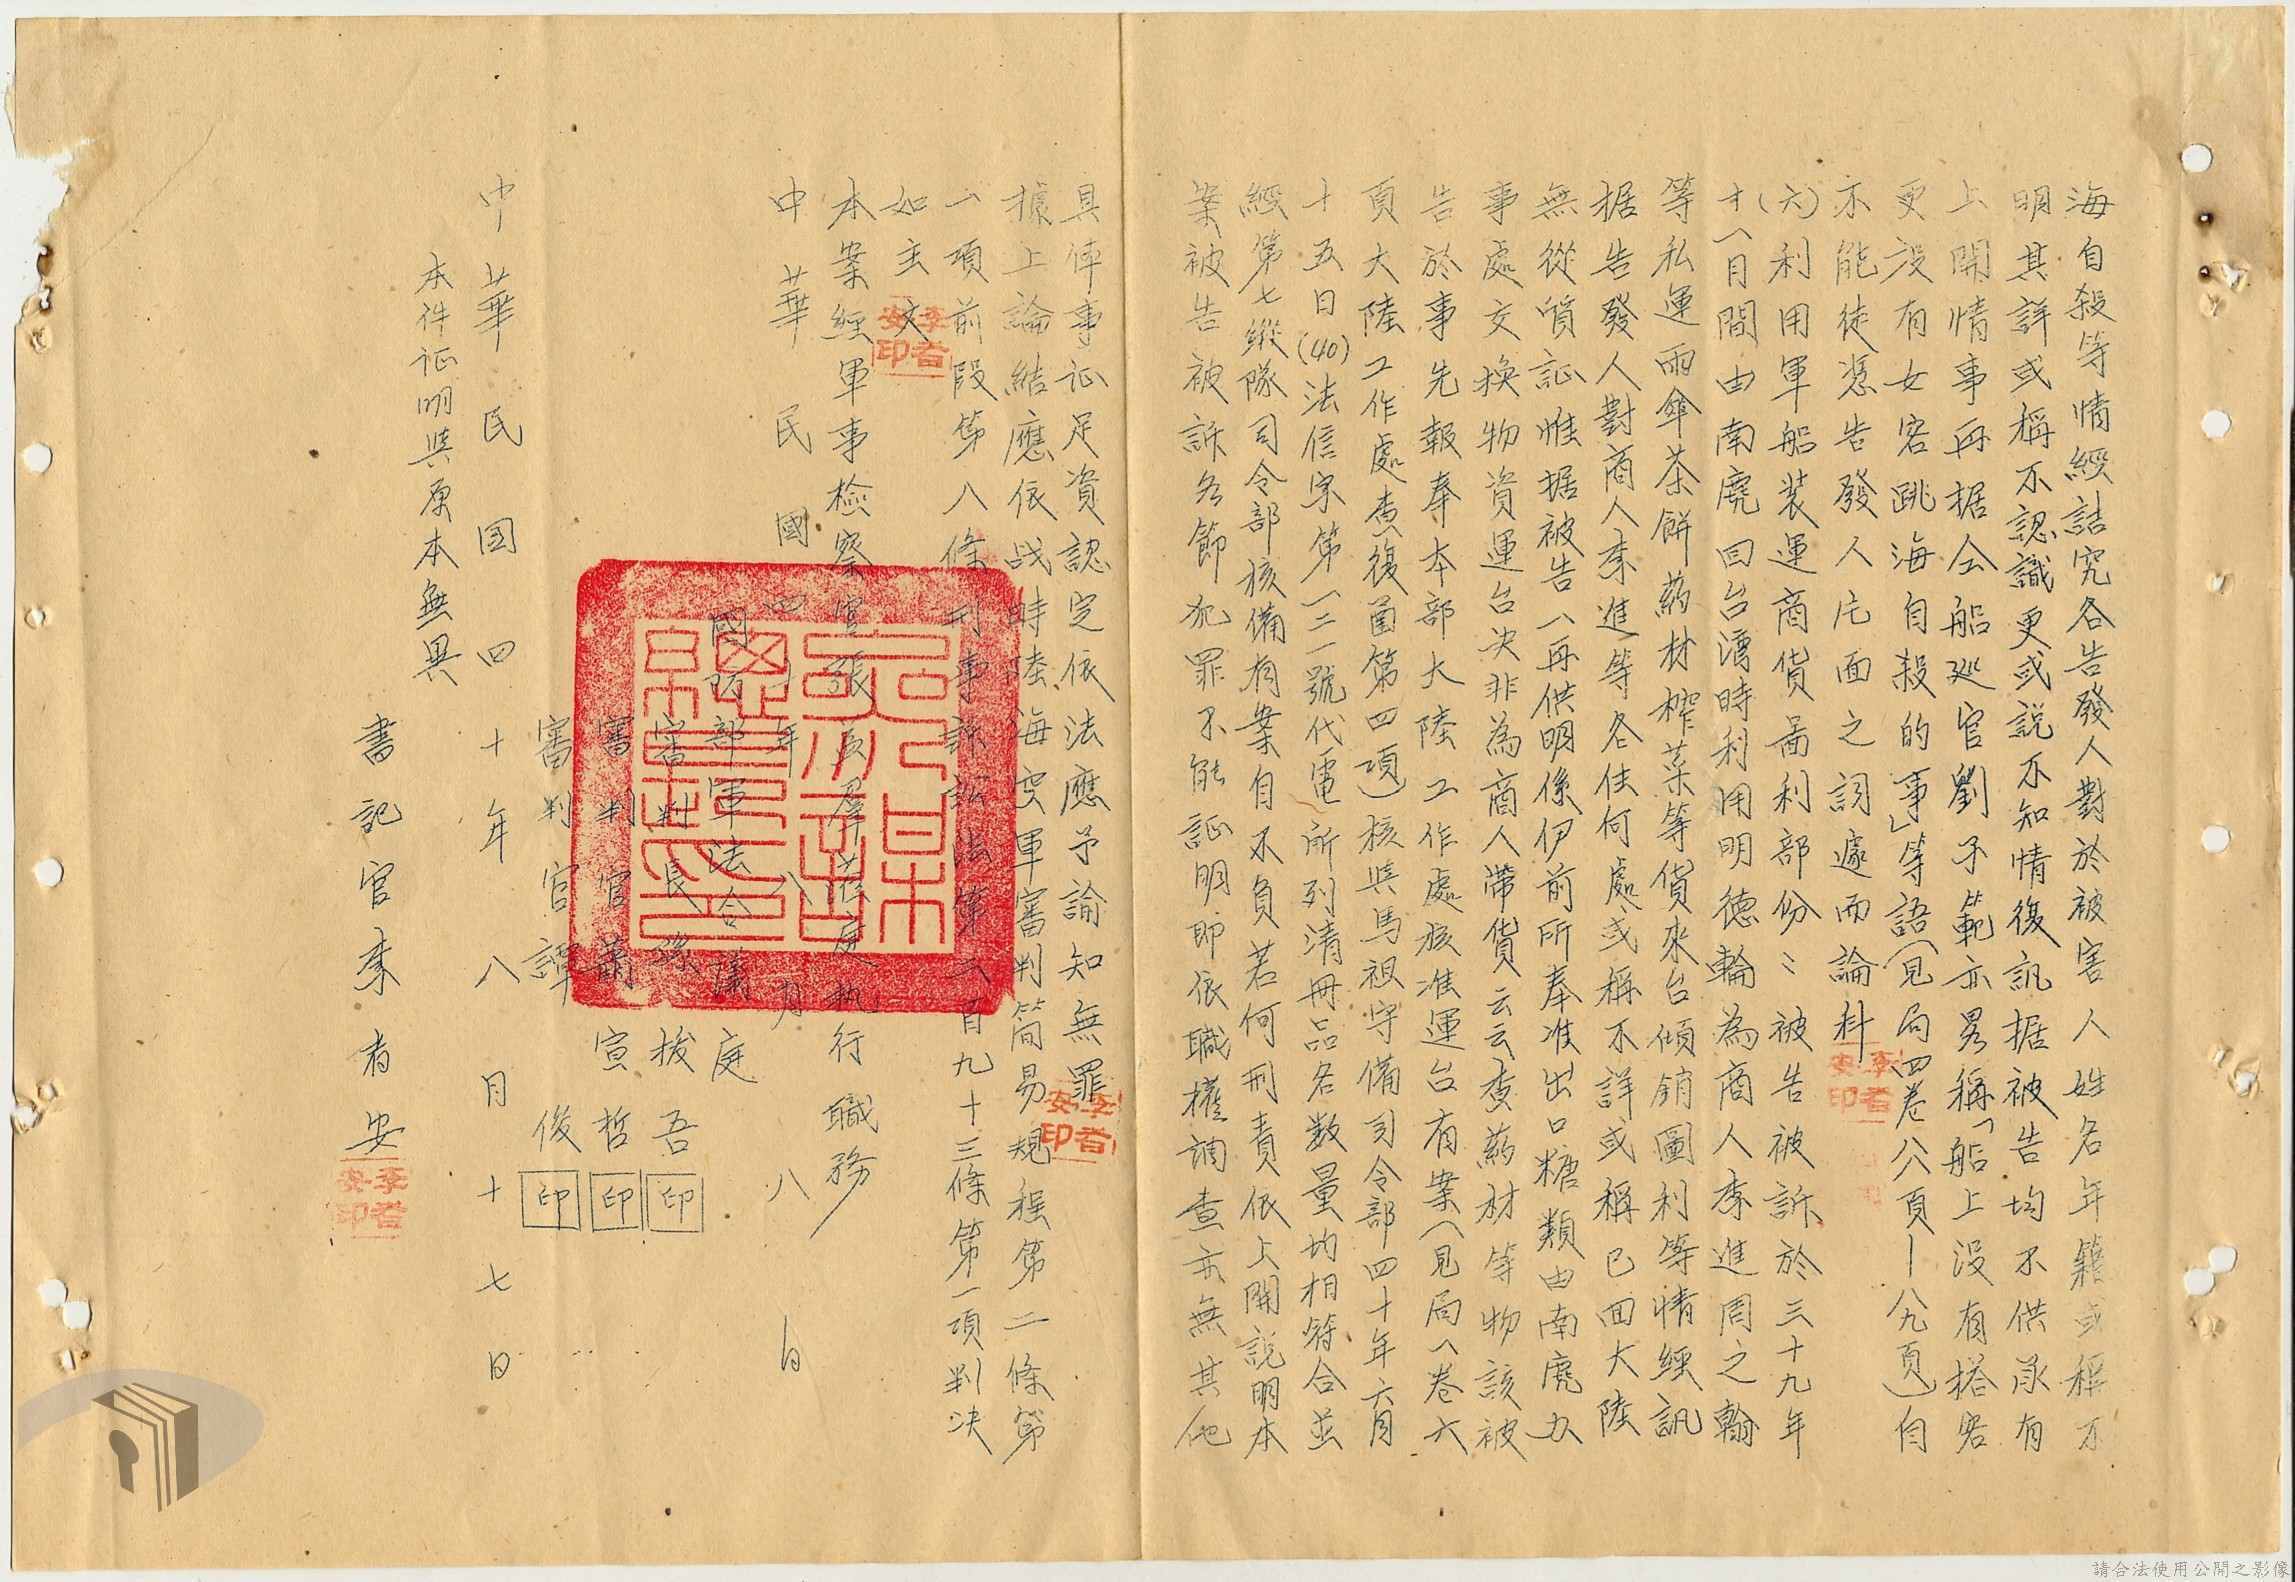 海自殺等情經詰究各告發人對於被害人姓名年籍或稱不
明其詳或稱不認識更或說不知情復訊据被告均不供承有
上開情事再据仝船巡官劉予範亦畧稱「船上沒有搭客
更沒有女客跳海自殺的事」等語(見局四卷八八頁—八九頁)自
不能徒憑告發人片面之詞遽而論科
(六)利用軍船装運商貨啚利部份：被告被訴於三十九年
十八月間由南麂回台灣時利用明德輪為商人李進周之翰
等私運雨傘茶餅葯材榨菜等貨來台傾銷圖利等情經訊
据告發人對商人李進等各住何處或稱不詳或稱已回大陸
無從質証惟据被告八再供明係伊前所奉准出口糖類由南麂办
事處交換物資運台决非為商人帶貨云云查葯材等物該被
告於事先報奉本部大陸工作處核准運台有案(見局八卷六
頁大陸工作處查復箇第四項)核與馬祖守備司令部四十年六月
十五日(40)法信宗第一三一號代電所列清冊品名数量均相符合並
經第七縱隊司令部核備有案自不負若何刑責依上開說明本
案被告被訴各節犯罪不能証明即依職權調查亦無其他
具体事证足資認定依法應予諭知無罪
據上論結應依战時陸海空軍審判简易規程第二條第
一項前段第八條刑事訴訟法第二百九十三條第一項判决
如主文
本案經軍事檢察官張孟羣蒞庭執行職務
中華民國四十年八月八日
國防部軍法合議庭
審判長孫拔吾印
審判官蕭宣哲印
審判官譚俊印
中華民国四十年八月十七日
本件证明與原本無異
書記官李者安
李者安印
請合法使用公開之影像